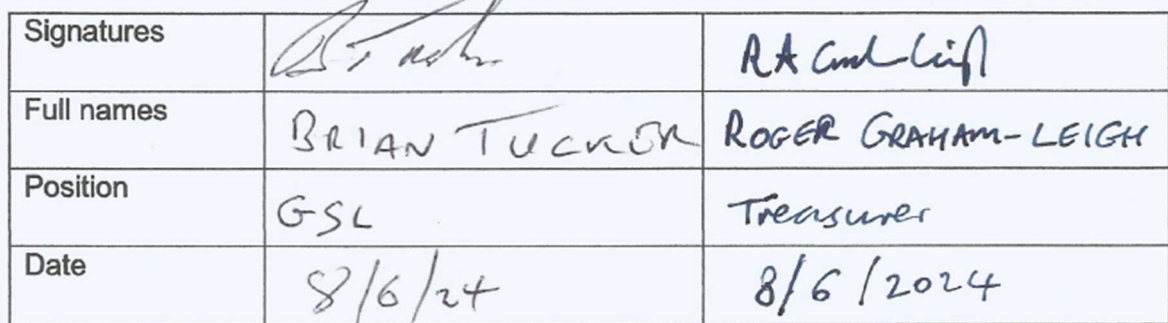 Signatures B Tucker RA Graham-Leigh
Full names BRIAN TUCKER ROGER GRAHAM-LEIGH
Position GSL Treasurer
Date 8/6/24 8/6/2024